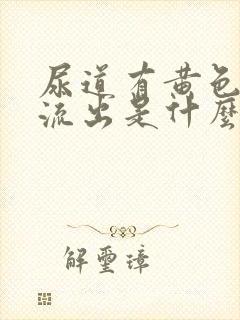 尿道有黄色
流出是什麽
解璽璋